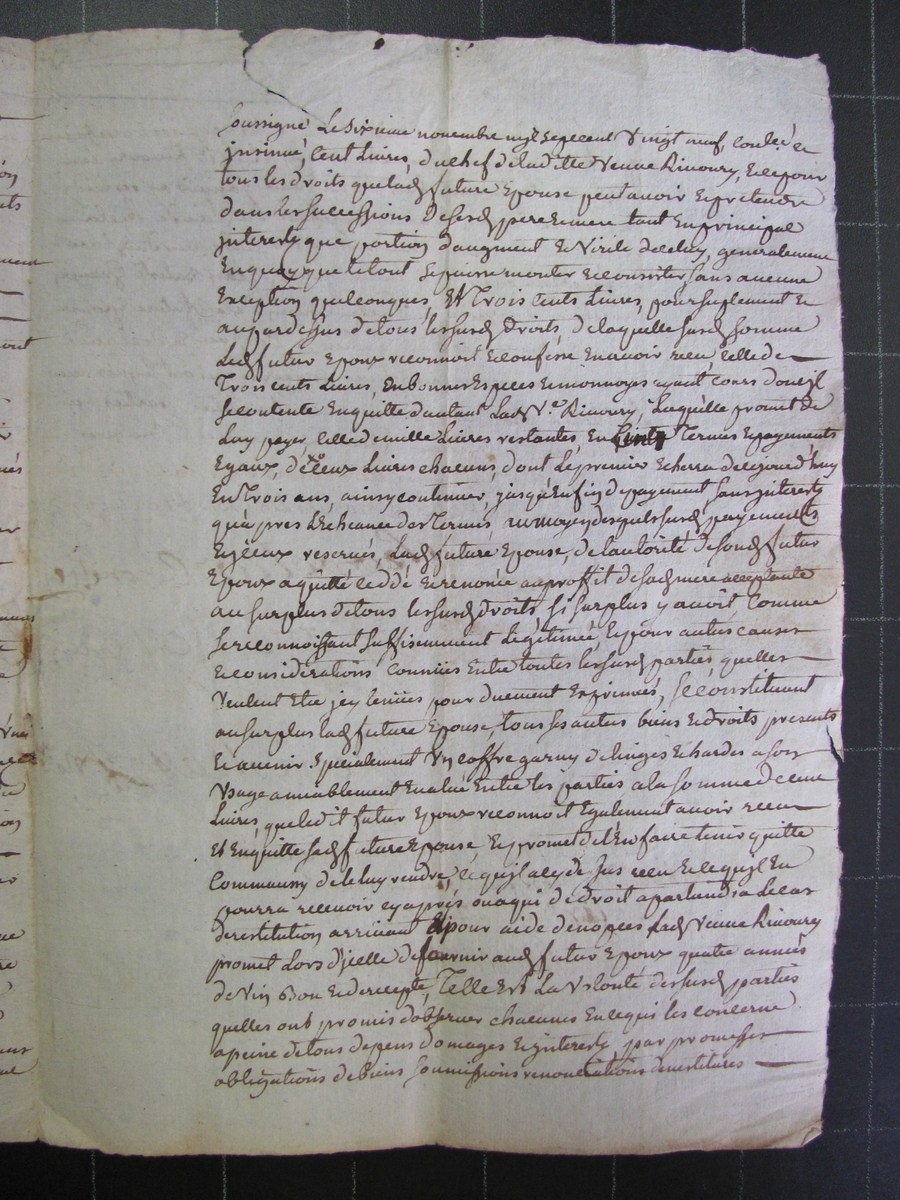 soussigné Le sixieme novembre mil sept cent vingt neuf, Conlé et
jnsinué, Cent Livres, du chef de laditte veuve Rivoury, Et ce pour
tous les droits que lad future Epouse peut avoir Et pretendre
dans les successions de sesd pere Et mere tant En principal
jnterests que portion d'augment Et Virile d'celuy, generalement
En quoy que le tout se puisse monter Et consister sans aucune
Exception quelconques, Et Trois Cents Livres, pour suplement Et
au par dessus de tous lessusd droits, de laquelle susd somme
Led futur Epoux reconnoit Et confesse En avoir receu Celle de
Trois cents Livres, En bonnes Especes Et monnoyes ayant cours dont jl
se contente En quitte d'autant Lad Ve Rivoury, Laquelle promet de
Luy payer Celle de mille Livres restantes, En Termes Et payements
Egaux, de Livres chacuns, dont Le premier Echerra de ce jourd'huy
En Trois ans, ainsy continuer, jusqu'En fin de payement sans jnterests
qu'apres L'Echeance des Termes, au moyen desquels susd payements
Et jceux reservés, Lad future Epouse, de l'autorité de sond futur
Epoux a quitté cedé Et renoncé au proffit de sad mere acceptante
au surplus de tous lessusd droits si surplus y avoit, Comme
se reconnoissant suffisemment Legitimée, Et pour autres causes
Et considerations Connües Entre toutes lessusd parties, quelles
veulent Etre jcy tenües pour duement Exprimées, se constituant
au surplus lad future Epouse, tous ses autres biens Et droits presents
Et avenir specialement Un coffre garny de linges Et hardes a son
Usage amiablement Evalué Entre les parties a la somme de cent
Livres, que ledit futur Epoux reconnoit Egalement avoir receu
Et En quitte sad future Epouse, Et promet de l'En faire tenir quitte
Comme aussy de le luy rendre, ce qu'jl a cy de jus receu Et ce qu'jl En
pourra recevoir cy apres ou a qui de droit apartiendra Le cas
de restitution arrivant Et pour aide de nopces Lad veuve Rivoury
promet Lors d'jcelle de fournir aud futur Epoux quatre années
de vin Bon Et de recepte, Telle Est La volonté dessusd parties
quelles ont promis d'observer chacunes En ce qui les concerne
a peine de tous depens domages Et jnterests par promesses
obligations de biens soumissions renonciations Et vestitures